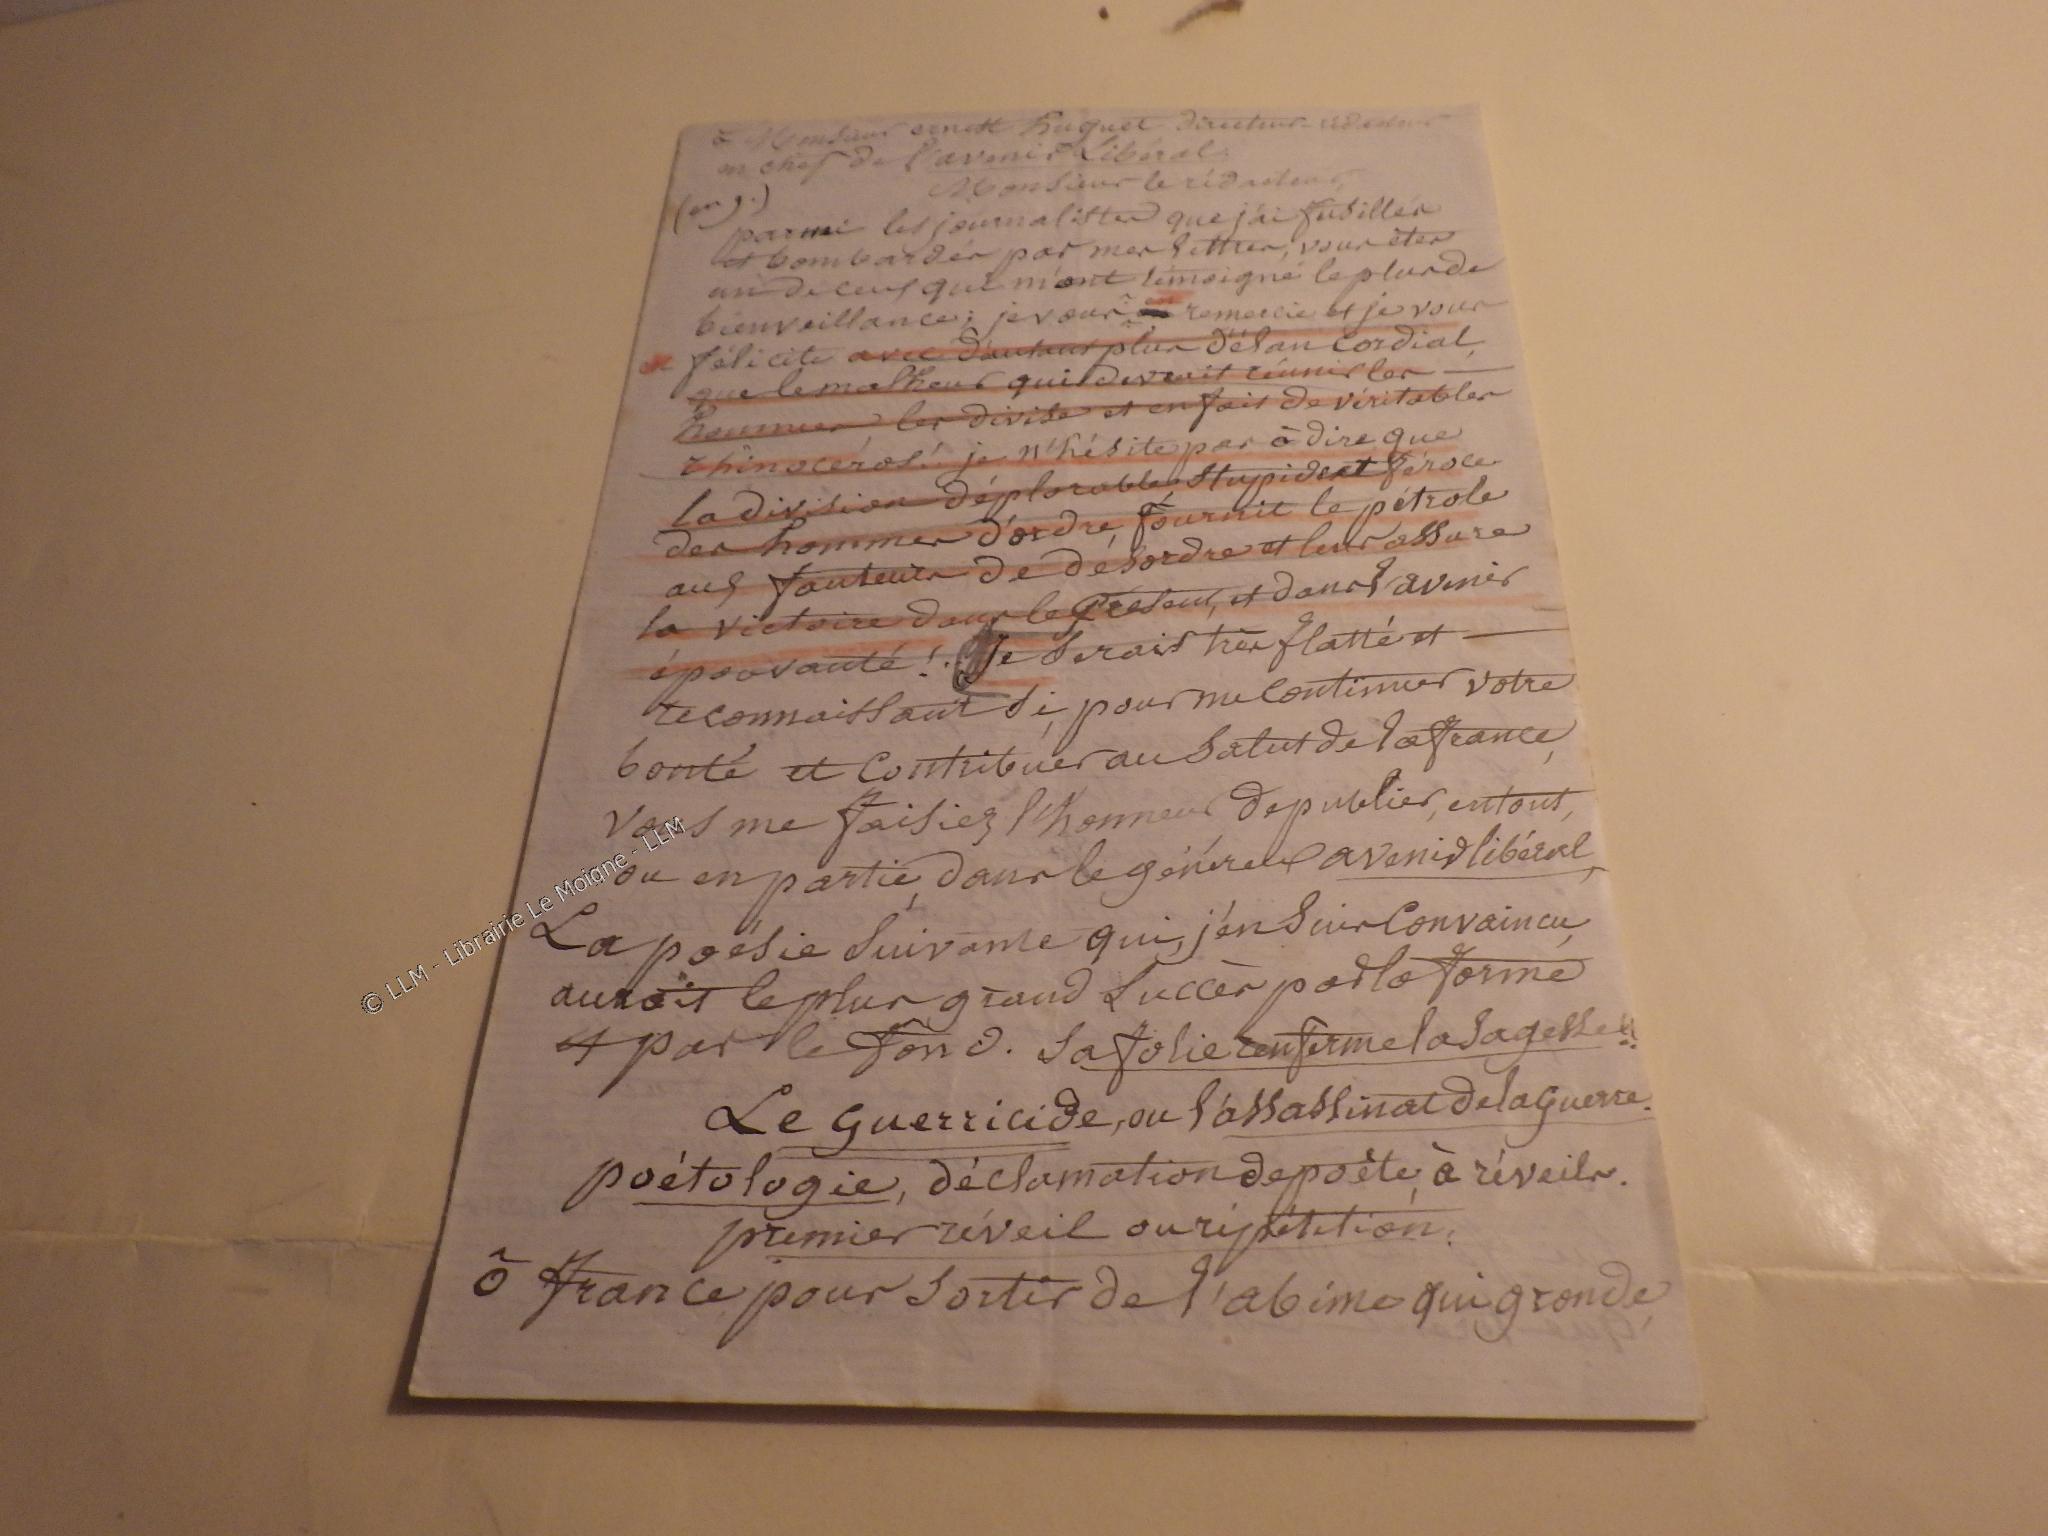 à Monsieur ernest huguet directeur-rédacteur
en chef de l'avenir Libéral.
Monsieur le rédacteur,
parmi les journalistes que j'ai fusillés
et bombardés par mes lettres, vous êtes
un de ceux qui m'ont témoigné le plus de
bienveillance; je vous en remercie et je vous
félicite avec d'autant plus d'élan cordial,
que le malheur qui devrait réunir les
hommes les divise et en fait de véritables
rhinocéros! je n'hésite pas à dire que
la division déplorable stupide et féroce
des hommes d'ordre, fournit le pétrole
aux fauteurs de désordre et leur assure
la victoire dans le présent, et dans l'avenir
épouvanté! Je serais très flatté et
reconnaissant si, pour me continuer votre
bonté et contribuer au salut de la france,
vous me faisiez l'honneur de publier, en tout,
ou en partie, dans le généreux avenir libéral,
La poésie suivante qui, j'en suis convaincu,
aurait le plus grand succès par la forme
et par le fond. sa folie renferme la sagesse!!
Le guerricide, ou l'assassinat de la guerre.
poétologie, déclamation de poète, à réveils.
premier réveil ou répétition.
ô france pour sortir de l'abime qui gronde
© LLM - Librairie Le Moigne - LLM